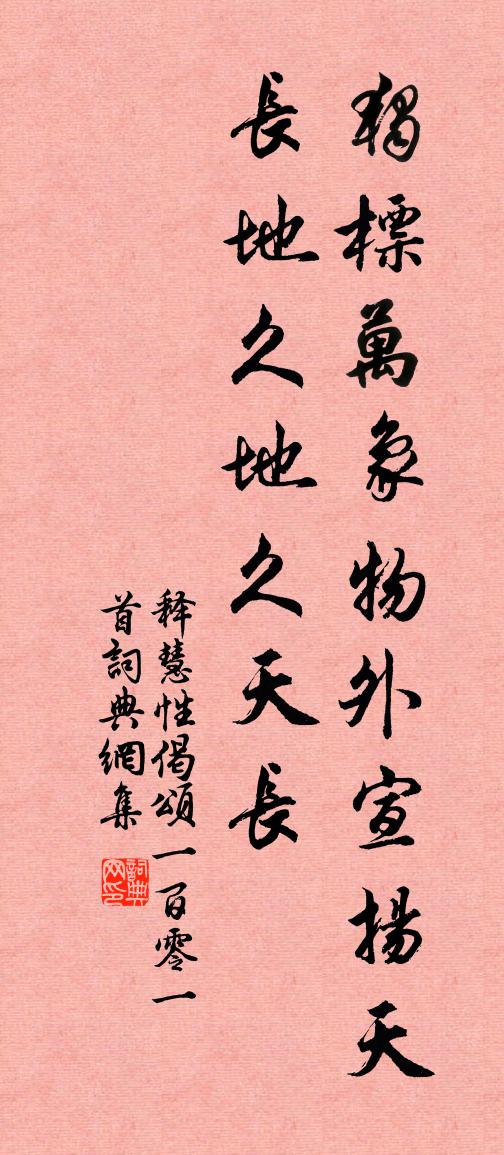 獨標萬象物外宣揚天
長地久地久天長
释慧性偈頌一百零一
首詞典網集
詞典
网印